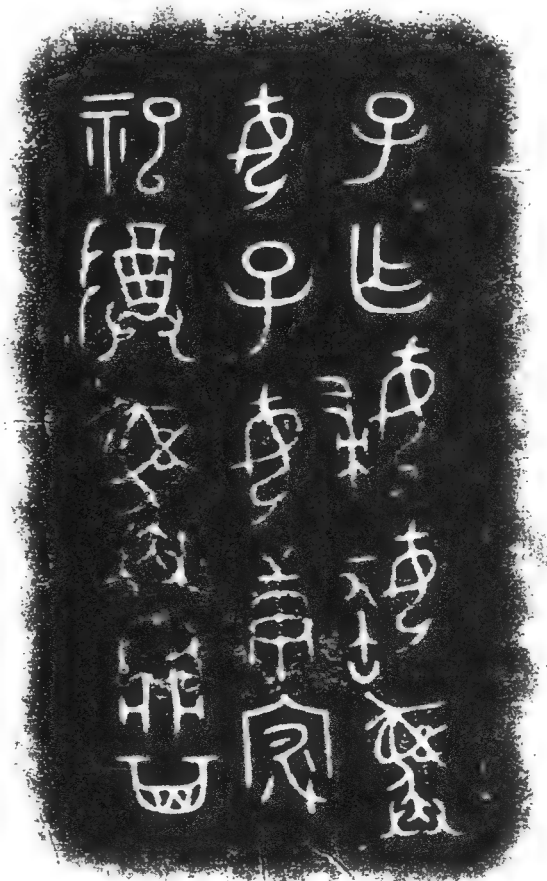 子乍婦媩彝
女子母庚宓
祀尊彝